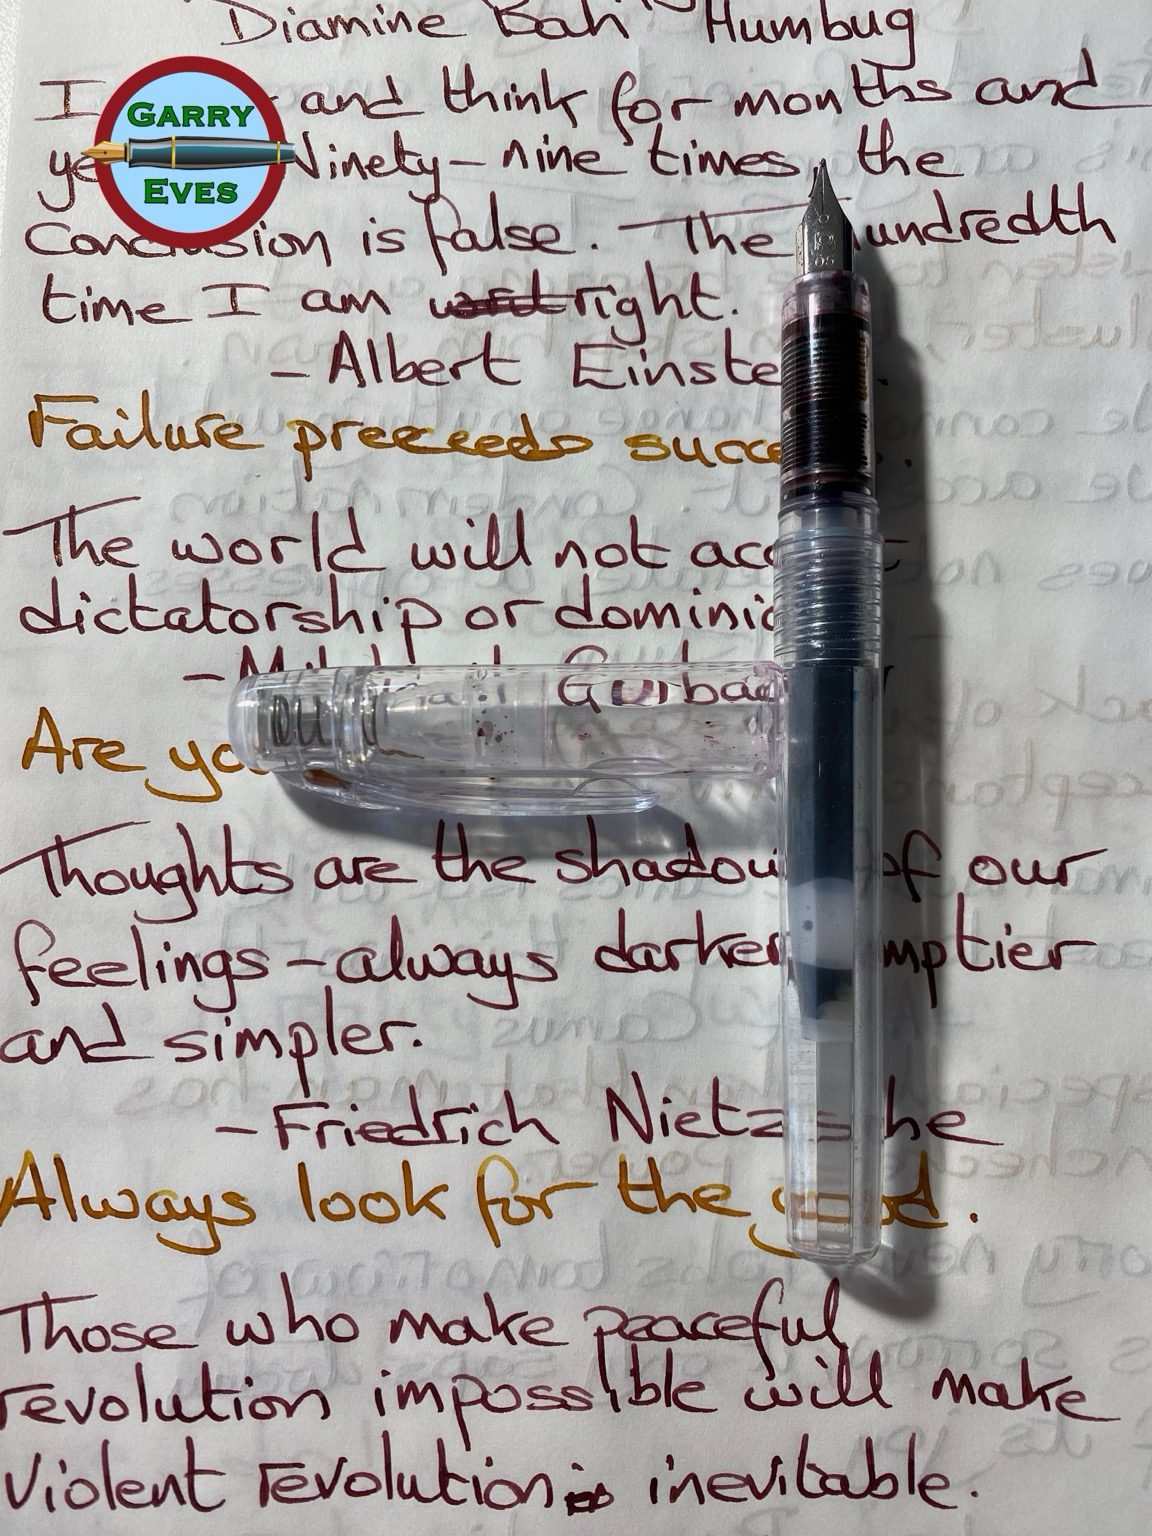 Diamine Bah Humbug
I and think for months and
GARRY
EVES
ye Ninety-nine times, the
Conclusion is false. The hundredth
time I am right.
- Albert Einste
Failure preeeeds succe .
The world will not acc t
dictatorship or domini
- Mikhail Gorbac v
Are yo
Thoughts are the shadow of our
feelings - always darker, emptier
and simpler.
- Friedrich Nietzsche
Always look for the good.
Those who make peaceful
revolution impossible will make
violent revolution inevitable.